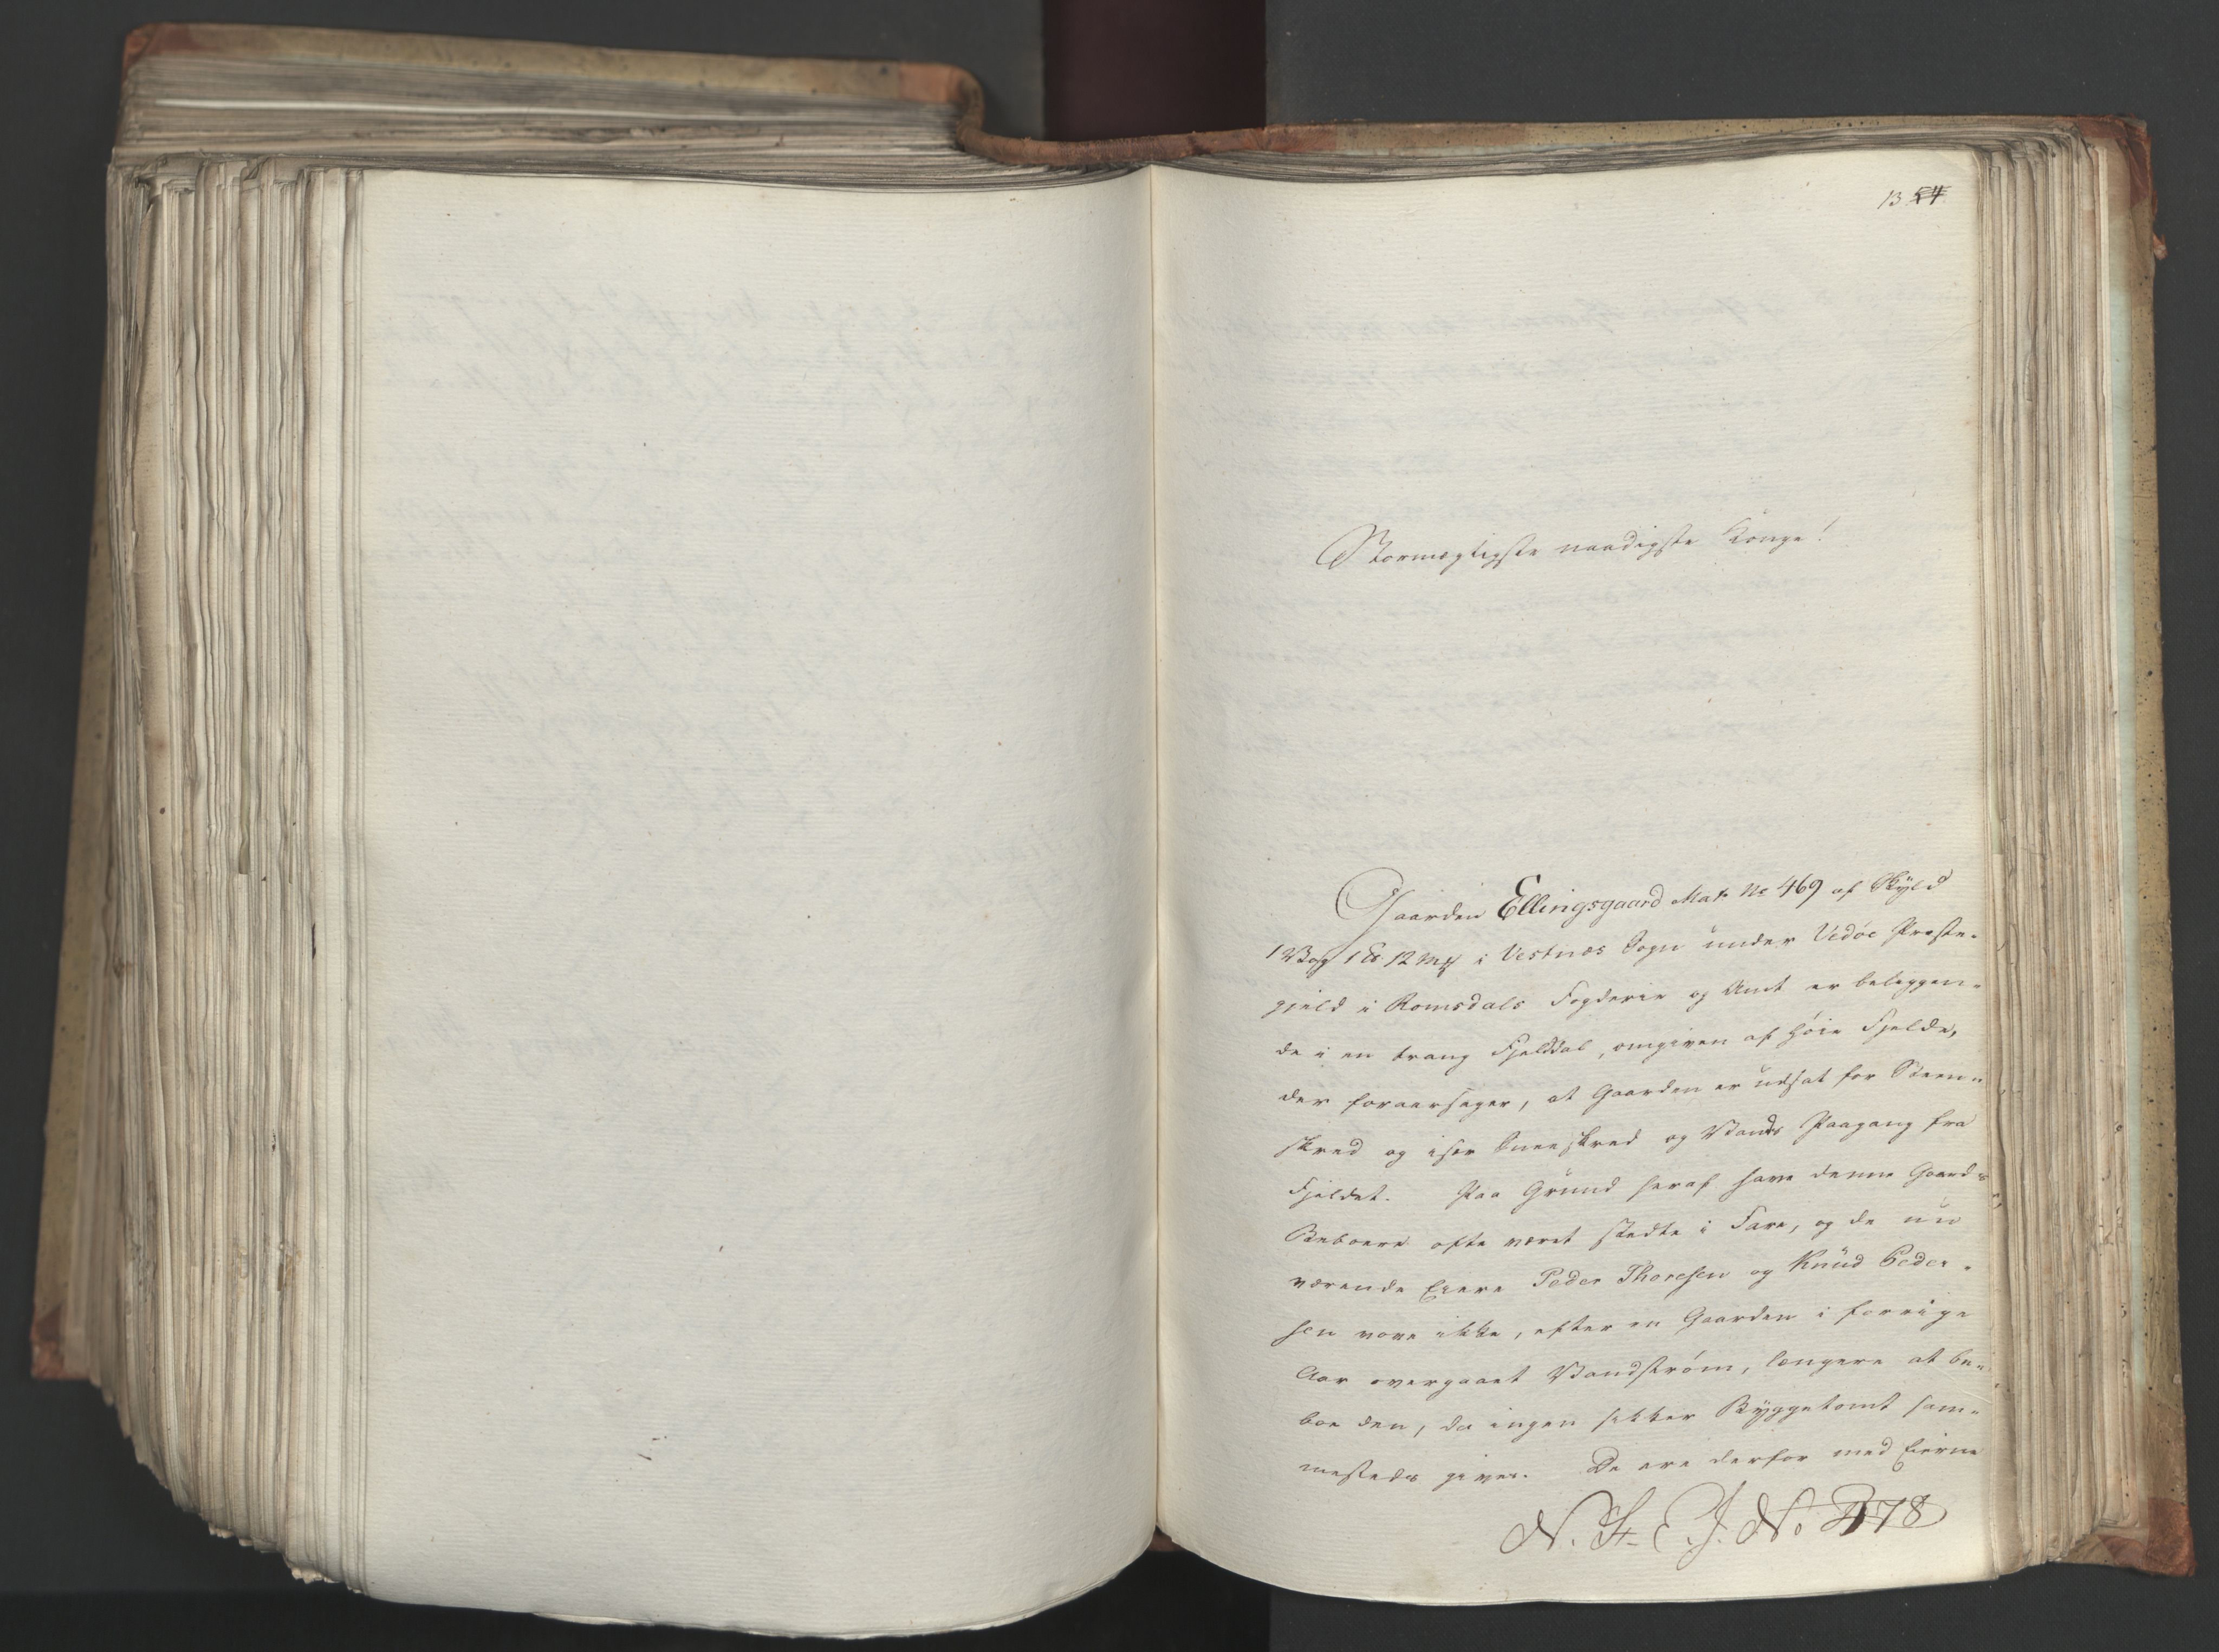 13 54
Stormægtigste naadigste Konge!
Gaarden Ellingsgaard Mat. No 469 af Skÿld
1 Vog 1 12 i Vestnæs Sogn ünder Vedøe Præste-
gield i Romsdals Fogderie og Amt er beleggen-
de i en trang Fjelddal, omgiven af høie Fjelde,
der foraarsager, at Gaarden er üdsat for Steen-
skred og især Sneeskred og Vands Paagang fra
Fjeldet. Paa Gründ heraf have denne Gaards
Beboere ofte været stedte i Fare, og de nü
værende Eiere Peder Thoresen og Knüd Peder-
sen vove ikke, efteren Gaarden i forrige
Aar overgaaet Vandstrøm, længere at be-
boe den, da ingen sikker Bÿggetomt sam-
mesteds gives. De ere derfor med Eierne
N. St. E. J. No 2478